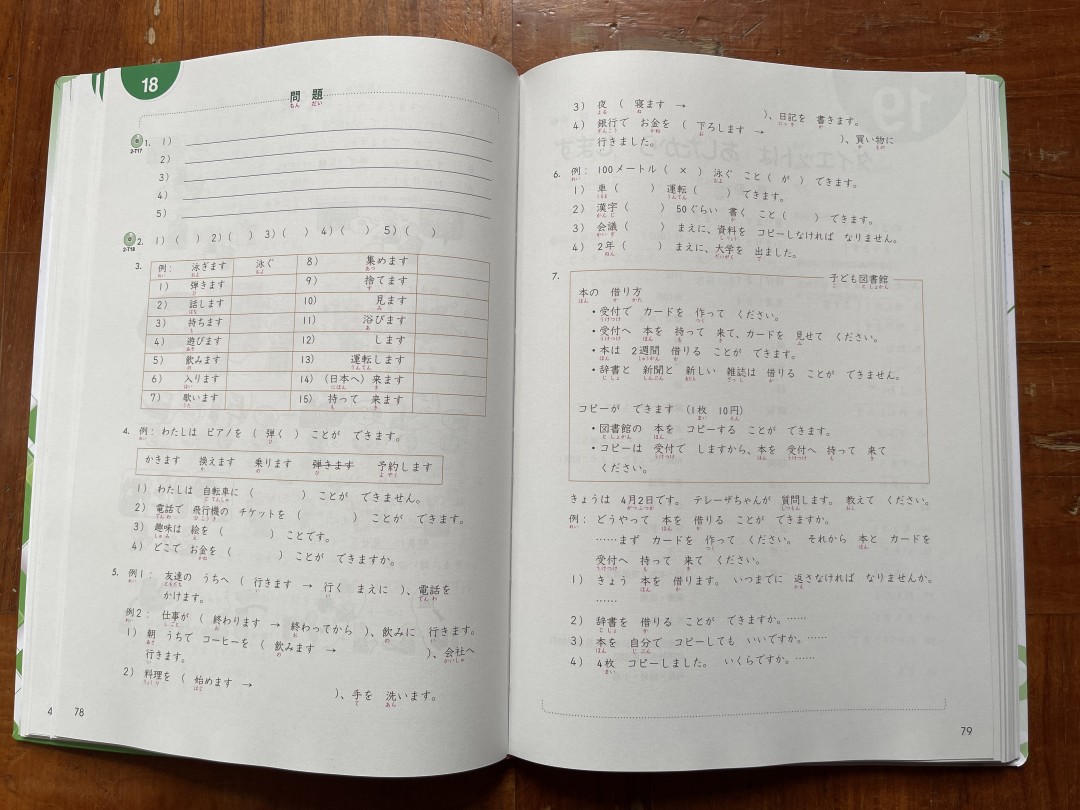 18
問題
もん だい
2-T17
1. 1)
2)
3)
4)
5)
2-T18
2. 1)( ) 2)( ) 3)( ) 4)( ) 5)( )
3.
例: 泳ぎます 泳ぐ 8) 集めます
1) 弾きます 9) 捨てます
2) 話します 10) 見ます
3) 持ちます 11) 浴びます
4) 遊びます 12) します
5) 飲みます 13) 運転します
6) 入ります 14) (日本へ)来ます
7) 歌います 15) 持って 来ます
4. 例: わたしは ピアノを ( 弾く ) ことが できます。
かきます 換えます 乗ります 弾きます 予約します
1) わたしは 自転車に ( ) ことが できません。
2) 電話で 飛行機の チケットを ( ) ことが できます。
3) 趣味は 絵を ( ) ことです。
4) どこで お金を ( ) ことが できますか。
5. 例1: 友達の うちへ ( 行きます → 行く まえに )、電話を
かけます。
例2: 仕事が ( 終わります → 終わってから )、飲みに 行きます。
1) 朝 うちで コーヒーを ( 飲みます → )、会社へ
行きます。
2) 料理を ( 始めます → )、手を 洗います。
4 78
19
3) 夜 ( 寝ます → )、日記を 書きます。
4) 銀行で お金を ( 下ろします → )、買い物に
行きました。
6. 例: 100メートル( × ) 泳ぐ こと( が ) できます。
1) 車( ) 運転( ) できます。
2) 漢字( ) 50ぐらい 書く こと( ) できます。
3) 会議( ) まえに、資料を コピーしなければ なりません。
4) 2年( ) まえに、大学を 出ました。
7.
子ども図書館
本の 借り方
・受付で カードを 作って ください。
・受付へ 本を 持って 来て、カードを 見せて ください。
・本は 2週間 借りる ことが できます。
・辞書と 新聞と 新しい 雑誌は 借りる ことが できません。
コピーが できます (1枚 10円)
・図書館の 本を コピーする ことが できます。
・コピーは 受付で しますから、本を 受付へ 持って 来て
ください。
きょうは 4月2日です。 テレーザちゃんが 質問します。 教えて ください。
例: どうやって 本を 借りる ことが できますか。
……まず カードを 作って ください。 それから 本と カードを
受付へ 持って 来て ください。
1) きょう 本を 借ります。 いつまでに 返さなければ なりませんか。
……
2) 辞書を 借りる ことが できますか。……
3) 本を 自分で コピーしても いいですか。……
4) 4枚 コピーしました。 いくらですか。……
79